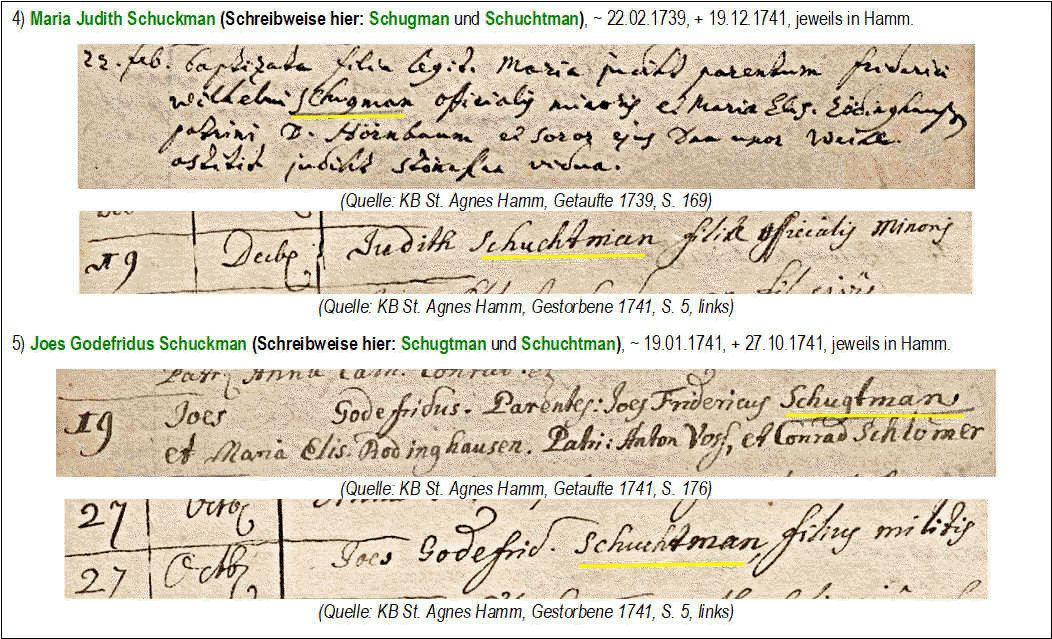 4) Maria Judith Schuckman (Schreibweise hier: Schugman und Schuchtman), ~ 22.02.1739, + 19.12.1741, jeweils in Hamm.
22. feb. baptizata filia legit. Maria judith parentum friderici
wilhelmi Schugman officialis minoris et Maria Elis. Bödinghausen
patrini D. Hörnbaum et soror ejus
astitit judith vidua.
(Quelle: KB St. Agnes Hamm, Getaufte 1739, S. 169)
19 Decbr Judith Schuchtman filia officialis minoris
(Quelle: KB St. Agnes Hamm, Gestorbene 1741, S. 5, links)
5) Joes Godefridus Schuckman (Schreibweise hier: Schugtman und Schuchtman), ~ 19.01.1741, + 27.10.1741, jeweils in Hamm.
Patr: Anna Cath. Conrad. et
19 Joes Godefridus. Parentes: Joes Fridericus Schugtman
et Maria Elis: Bodinghausen. Patri: Anton Voss, et Conrad Schlömer
(Quelle: KB St. Agnes Hamm, Getaufte 1741, S. 176)
27 Octbr
27 Octbr Joes Godefrid. Schuchtman, filius militis
(Quelle: KB St. Agnes Hamm, Gestorbene 1741, S. 5, links)